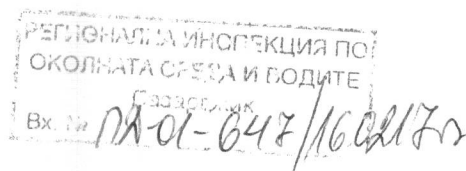 РЕГИОНАЛНА ИНСПЕКЦИЯ ПО
ОКОЛНАТА СРЕДА И ВОДИТЕ
Пазарджик
Вх. № ПД-01-647/160217г